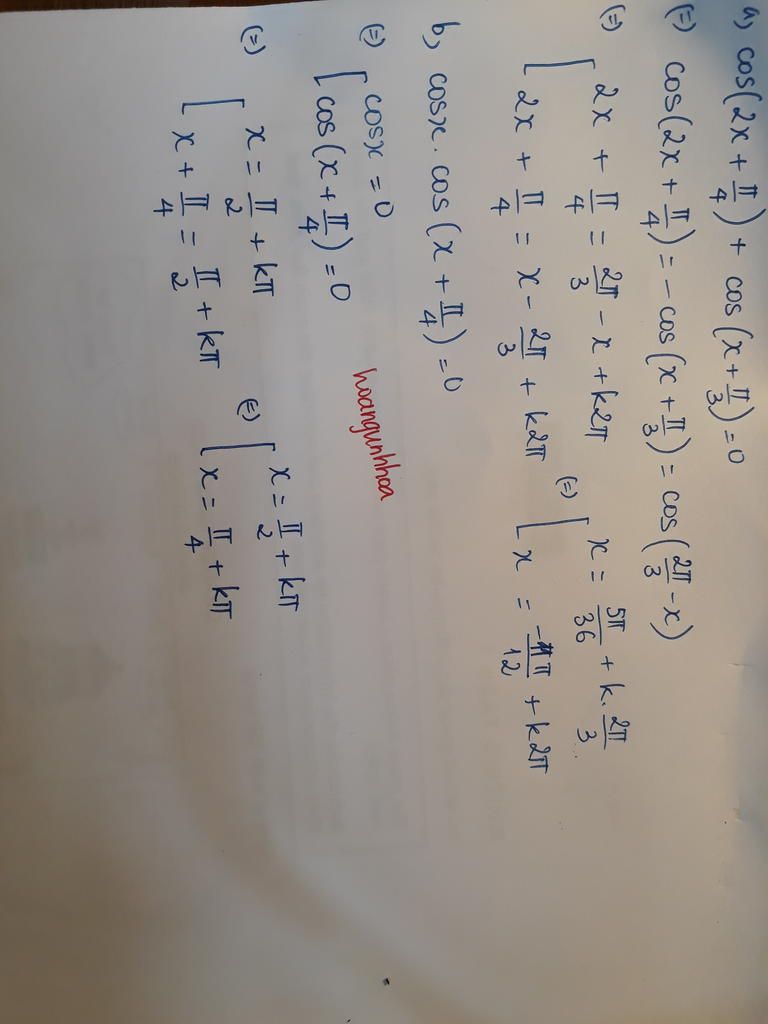 a, cos(2x + π/4) + cos(x + π/3) = 0
(=) cos(2x + π/4) = - cos(x + π/3) = cos(2π/3 - x)
(=) [ 2x + π/4 = 2π/3 - x + k2π (=) [ x = 5π/36 + k. 2π/3
2x + π/4 = x - 2π/3 + k2π x = -11π/12 + k2π
b, cosx. cos(x + π/4) = 0
(=) [ cosx = 0
cos(x + π/4) = 0
hoangunhhoa
(=) [ x = π/2 + kπ (=) [ x = π/2 + kπ
x + π/4 = π/2 + kπ x = π/4 + kπ